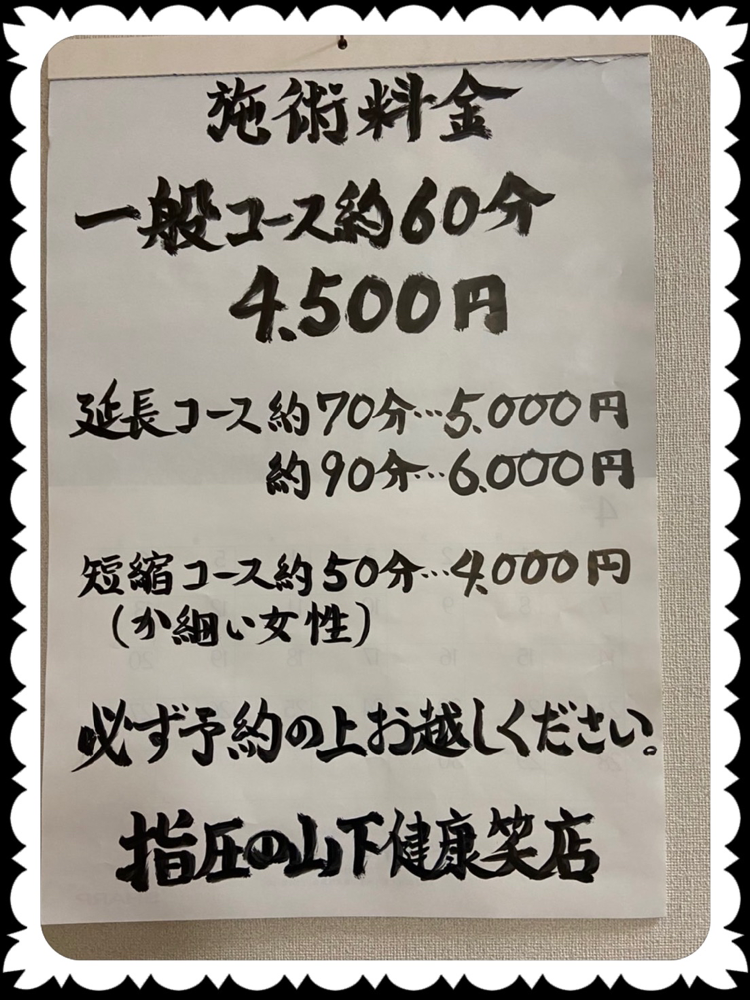 施術料金
一般コース約60分
4,500円
延長コース約70分…5,000円
約90分…6,000円
短縮コース約50分…4,000円
(か細い女性)
必ず予約の上お越しください。
指圧の山下健康笑店